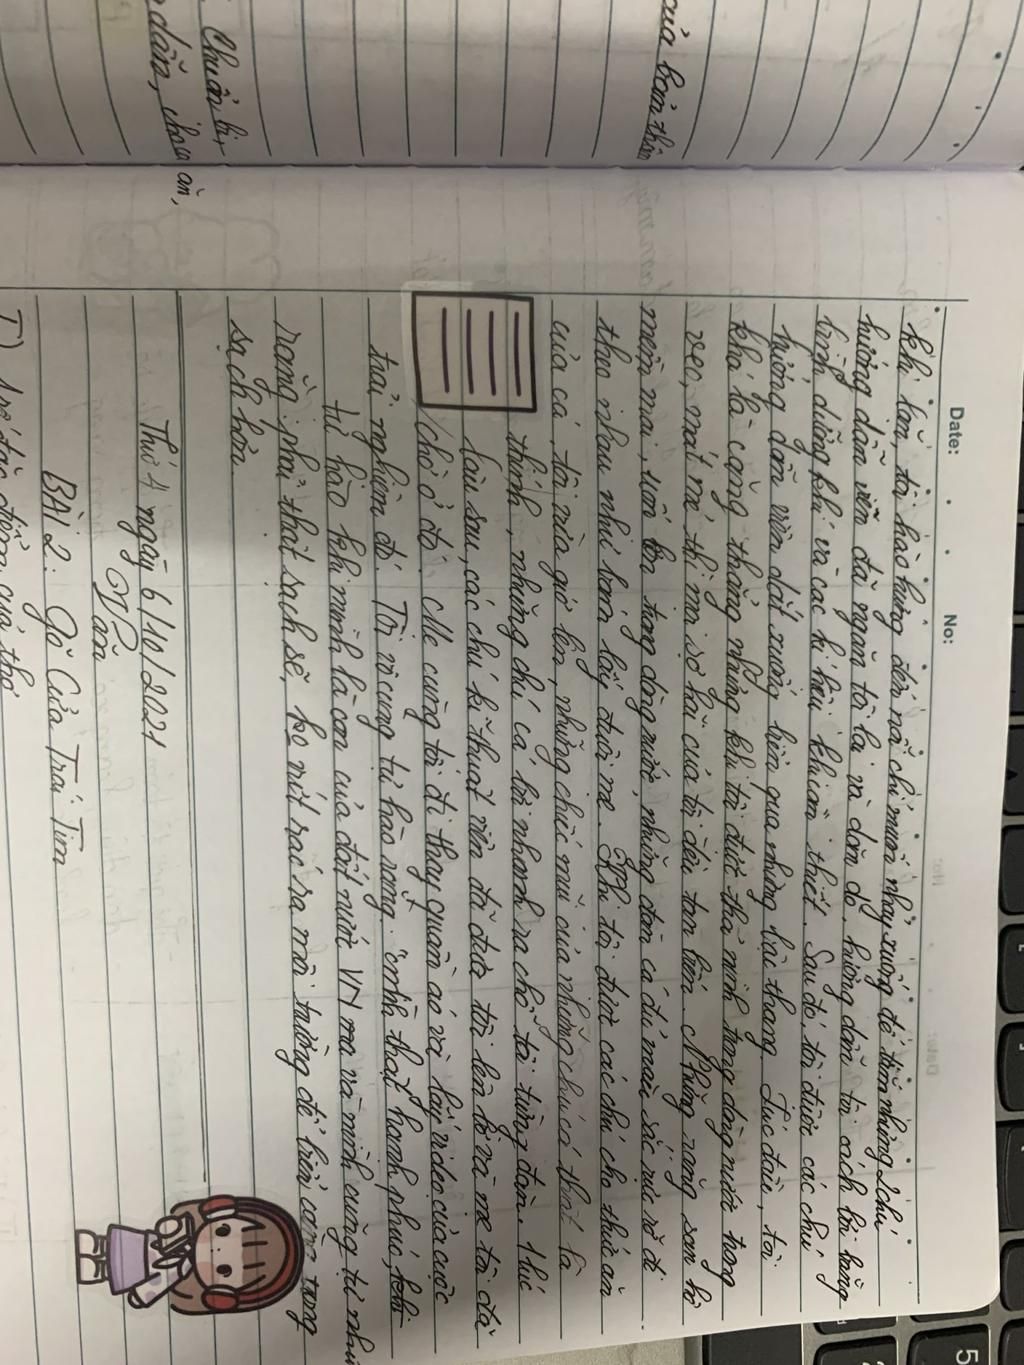 của bản thân
Chuẩn bị,
dẫn, chưa ăn,
Date:
No:
khi lặn, tôi hào hứng đến nỗi chỉ muốn nhảy xuống để tìm những chú
hướng dẫn viên đã ngăn tôi lại và dặn dò, hướng dẫn tôi cách lặn bằng
bình dưỡng khí và các kí hiệu khi cần thiết. Sau đó, tôi được các chú
hướng dẫn viên dắt xuống biển qua những bậc thang. Lúc đầu, tôi
khá là căng thẳng nhưng khi tôi được thả mình trong dòng nước trong
veo, mát mẻ, thì mọi sợ hãi của tôi đều tan biến. Những rặng san hô
mềm mại, uốn lượn trong dòng nước, những đàn cá đủ màu sắc rực rỡ đi
theo nhau như bám lấy đuôi mẹ. Khi tôi được các chú cho thức ăn
của cá, tôi vừa giơ lên, những chiếc mũi của những chú cá thật là
thính, những chú cá bơi nhanh ra chỗ tôi từng đàn. 1 lúc
lâu sau, các chú kĩ thuật viên đã đưa tôi lên bờ và mẹ tôi đã
chờ ở đó. Mẹ cùng tôi đi thay quần áo và lấy video của cuộc
trải nghiệm đó. Tôi vô cùng tự hào rằng mình thật hạnh phúc,
tự hào khi mình là con của đất nước VN mà và mình cũng tự nhủ
rằng phải thật sạch sẽ, ko vứt rác ra môi trường để biển càng trong
sạch hơn.
Thứ 4 ngày 6/10/2021
Văn
BÀI 2: Gõ Cửa Trái Tim
I)
đặc điểm của thơ